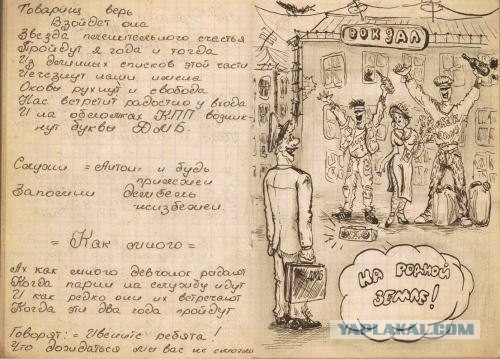 Товарищ верь
Взойдет она
Звезда пленительного счастья
Пройдут 2 года и тогда
Из длинных списков этой части
Исчезнут наши имена
Оковы рухнут и свобода
Нас встретит радостно у входа
И на обломках КПП возник-
нут буквы ДМБ.
Служи = Антон = и будь
прилежен
Запомни дембель
неизбежен.
= Как много =
Ах как много девчонок рыдают
Когда парни на службу идут
И как редко они их встречают
Когда эти два года пройдут
Говорят: = Извените ребята!
Что дождаться мы вас не смогли
ВОКЗАЛ
НА РОДНОЙ
ЗЕМЛЕ!
YAPLAKAL.COM